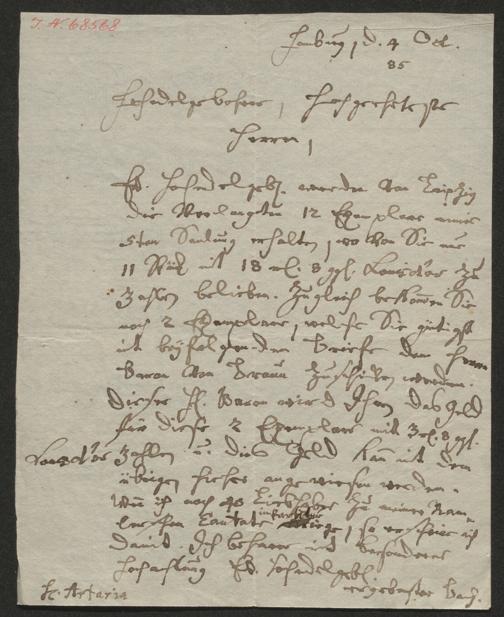 I. N. 68568
Hamburg, d. 4 Oct.
85
Hochedelgebohrne, Hochgeehrteste
Herrn,
Ew. Hochedelgeb. werden von Leipzig
die verlangten 12 Exemplare meiner
5ten Samlung erhalten, wovon Sie mir
11 Stück mit 18 rl. 8 ggl. Louisd'or zu
zahlen belieben. Zugleich bekommen Sie
noch 2 Exemplare, welche Sie gütigst
mit beyfolgendem Briefe dem Herrn
Baron von Braun zuschicken werden.
Dieser H. Baron wird Ihnen das Geld
für diese 2 Exemplare mit 3 rl. 8 ggl.
Louisd'or zahlen u. dies Geld kann mit dem
übrigen hieher angewiesen werden.
Wenn ich noch 40 Liebhaber zu meiner Ram-
lerschen Cantate kriege, so erscheine ich
damit. Ich beharre mit besonderer
Hochachtung Ew. Hochedelgeb.
ergebenster Bach.
H. Artaria